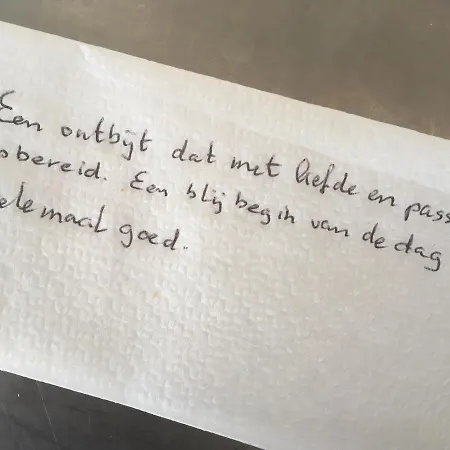 Een ontbijt dat met liefde en pass
bereid. Een blij begin van de dag
elemaal goed.